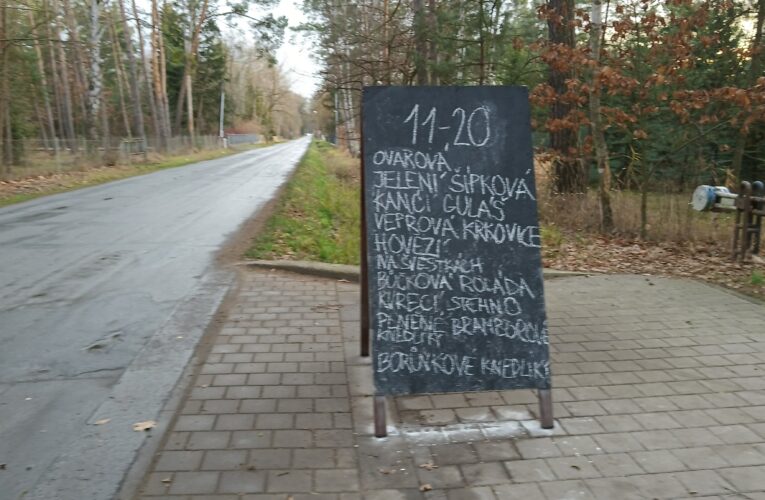 11-20
OVAROVÁ
JELENÍ ŠÍPKOVÁ
KANČÍ GULÁŠ
VEPŘOVÁ KRKOVICE
HOVĚZÍ
NA ŠVESTKÁCH
BŮČKOVÁ ROLÁDA
KUŘECÍ STEHNO
PLNĚNÉ BRAMBOROVÉ
KNEDLÍKY
BORŮVKOVÉ KNEDLÍKY